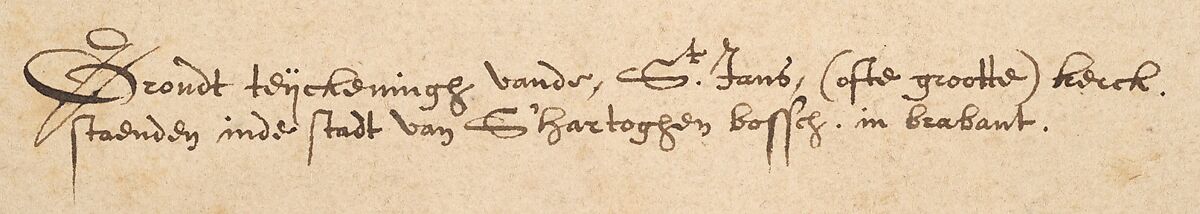 Grondt teÿckeningh vande, St. Jans, (ofte grootte) kerck.
staenden inde stadt van S'hartoghen bossch. in brabant.